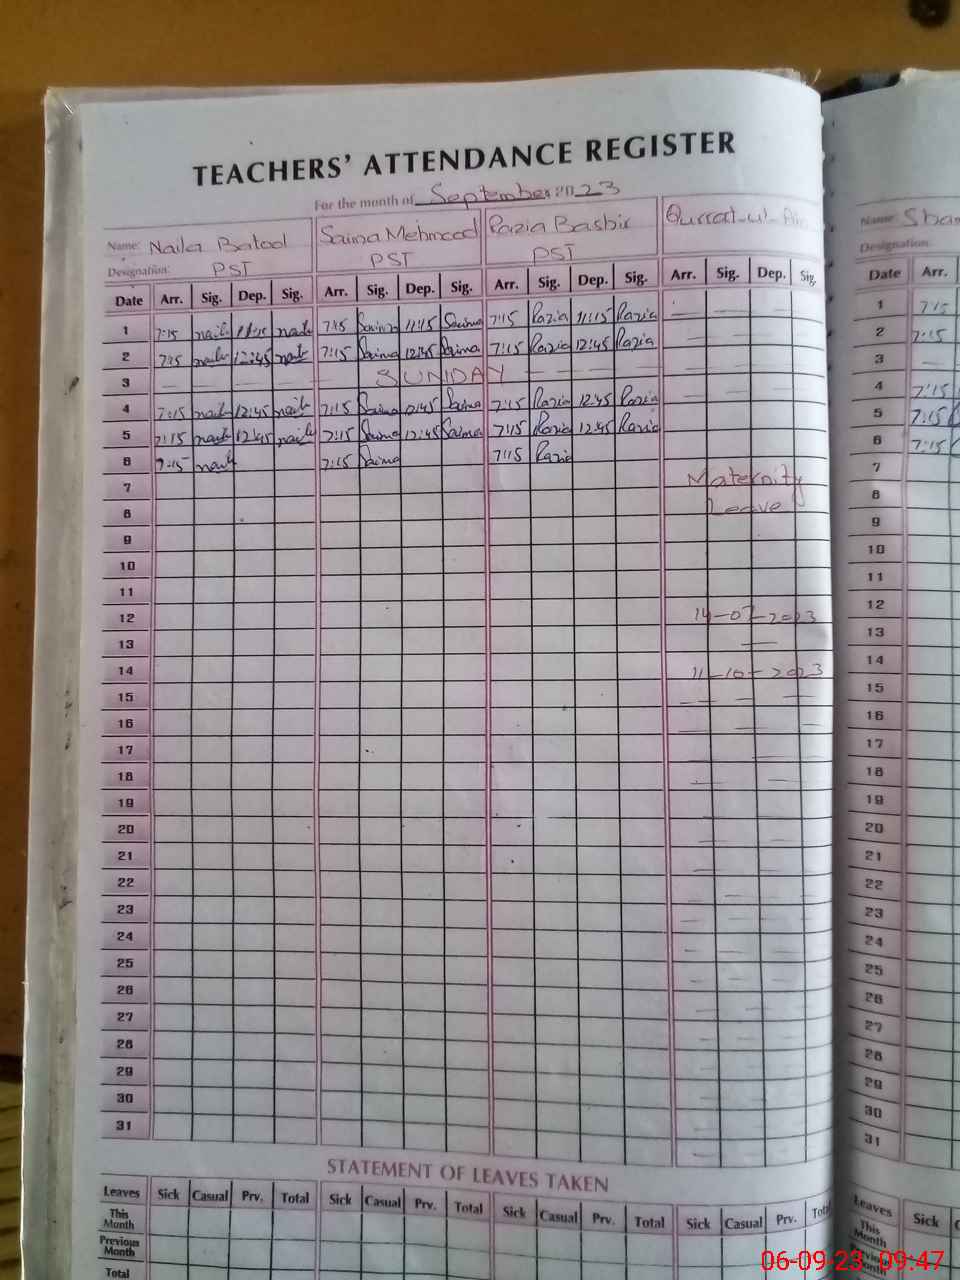 TEACHERS' ATTENDANCE REGISTER
For the month of September 2023
Name: Naila Batool Saima Mehmood Razia Bashir Qurrat-ul-Ain Name: Sha
Designation: PST PST PST Designation:
Date Arr. Sig. Dep. Sig. Arr. Sig. Dep. Sig. Arr. Sig. Dep. Sig. Arr. Sig. Dep. Sig. Date Arr.
1 7:15 naila 11:15 naila 7:15 Saima 11:15 Saima 7:15 Razia 11:15 Razia 1 7:15
2 7:15 naila 12:45 naila 7:15 Saima 12:45 Saima 7:15 Razia 12:45 Razia 2 7:15
3 SUNDAY 3
4 7:15 naila 12:45 naila 7:15 Saima 12:45 Saima 7:15 Razia 12:45 Razia 4 7:15
5 7:15 naila 12:45 naila 7:15 Saima 12:45 Saima 7:15 Razia 12:45 Razia 5 7:15
6 7:15 naila 7:15 Saima 7:15 Razia 6 7:15
7 Maternity 7
8 Leave 8
9 9
10 10
11 11
12 14-07-2023 12
13 13
14 11-10-2023 14
15 15
16 16
17 17
18 18
19 19
20 20
21 21
22 22
23 23
24 24
25 25
26 26
27 27
28 28
29 29
30 30
31 31
STATEMENT OF LEAVES TAKEN
Leaves Sick Casual Prv. Total Sick Casual Prv. Total Sick Casual Prv. Total Sick Casual Prv. Leaves Sick
This Month This Month
Previous Month Previous Month
Total
06-09-23 09:47